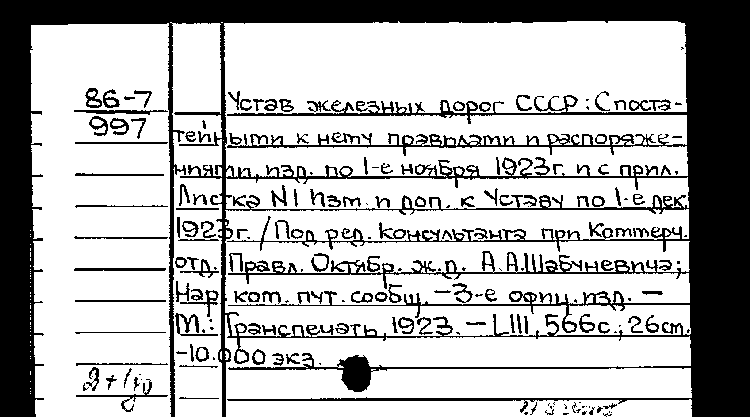 86-7
997
Устав железных дорог СССР: С поста-
тейными к нему правилами и распоряже-
ниями, изд. по 1-е ноября 1923г. и с прил.
Листка N1 Изм. и доп. к Уставу по 1-е дек.
1923г. / Под ред. консультанта при Коммерч.
отд. Правл. Октябр. ж.д. А.А.Шабуневича;
Нар. ком. пут. сообщ. – 3-е офиц. изд. –
М.: Транспечать, 1923. – LIII, 566с.; 26см.
-10.000 экз.